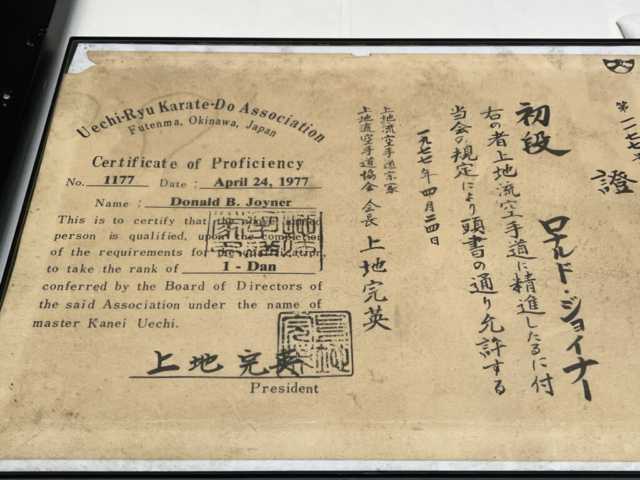 Uechi-Ryu Karate-Do Association
Futenma, Okinawa, Japan
Certificate of Proficiency
No. 1177 Date : April 24, 1977
Name : Donald B. Joyner
This is to certify that the above named
person is qualified, upon the completion
of the requirements for the examination,
to take the rank of 1 - Dan
conferred by the Board of Directors of
the said Association under the name of
master Kanei Uechi.
上地完英
President
第一一七
證
初段
ロナルド・ジョイナー
右の者上地流空手道に精進したるに付
当会の規定により頭書の通り允許する
一九七七年四月二四日
上地流空手道宗家
上地流空手道協会 会長 上地完英